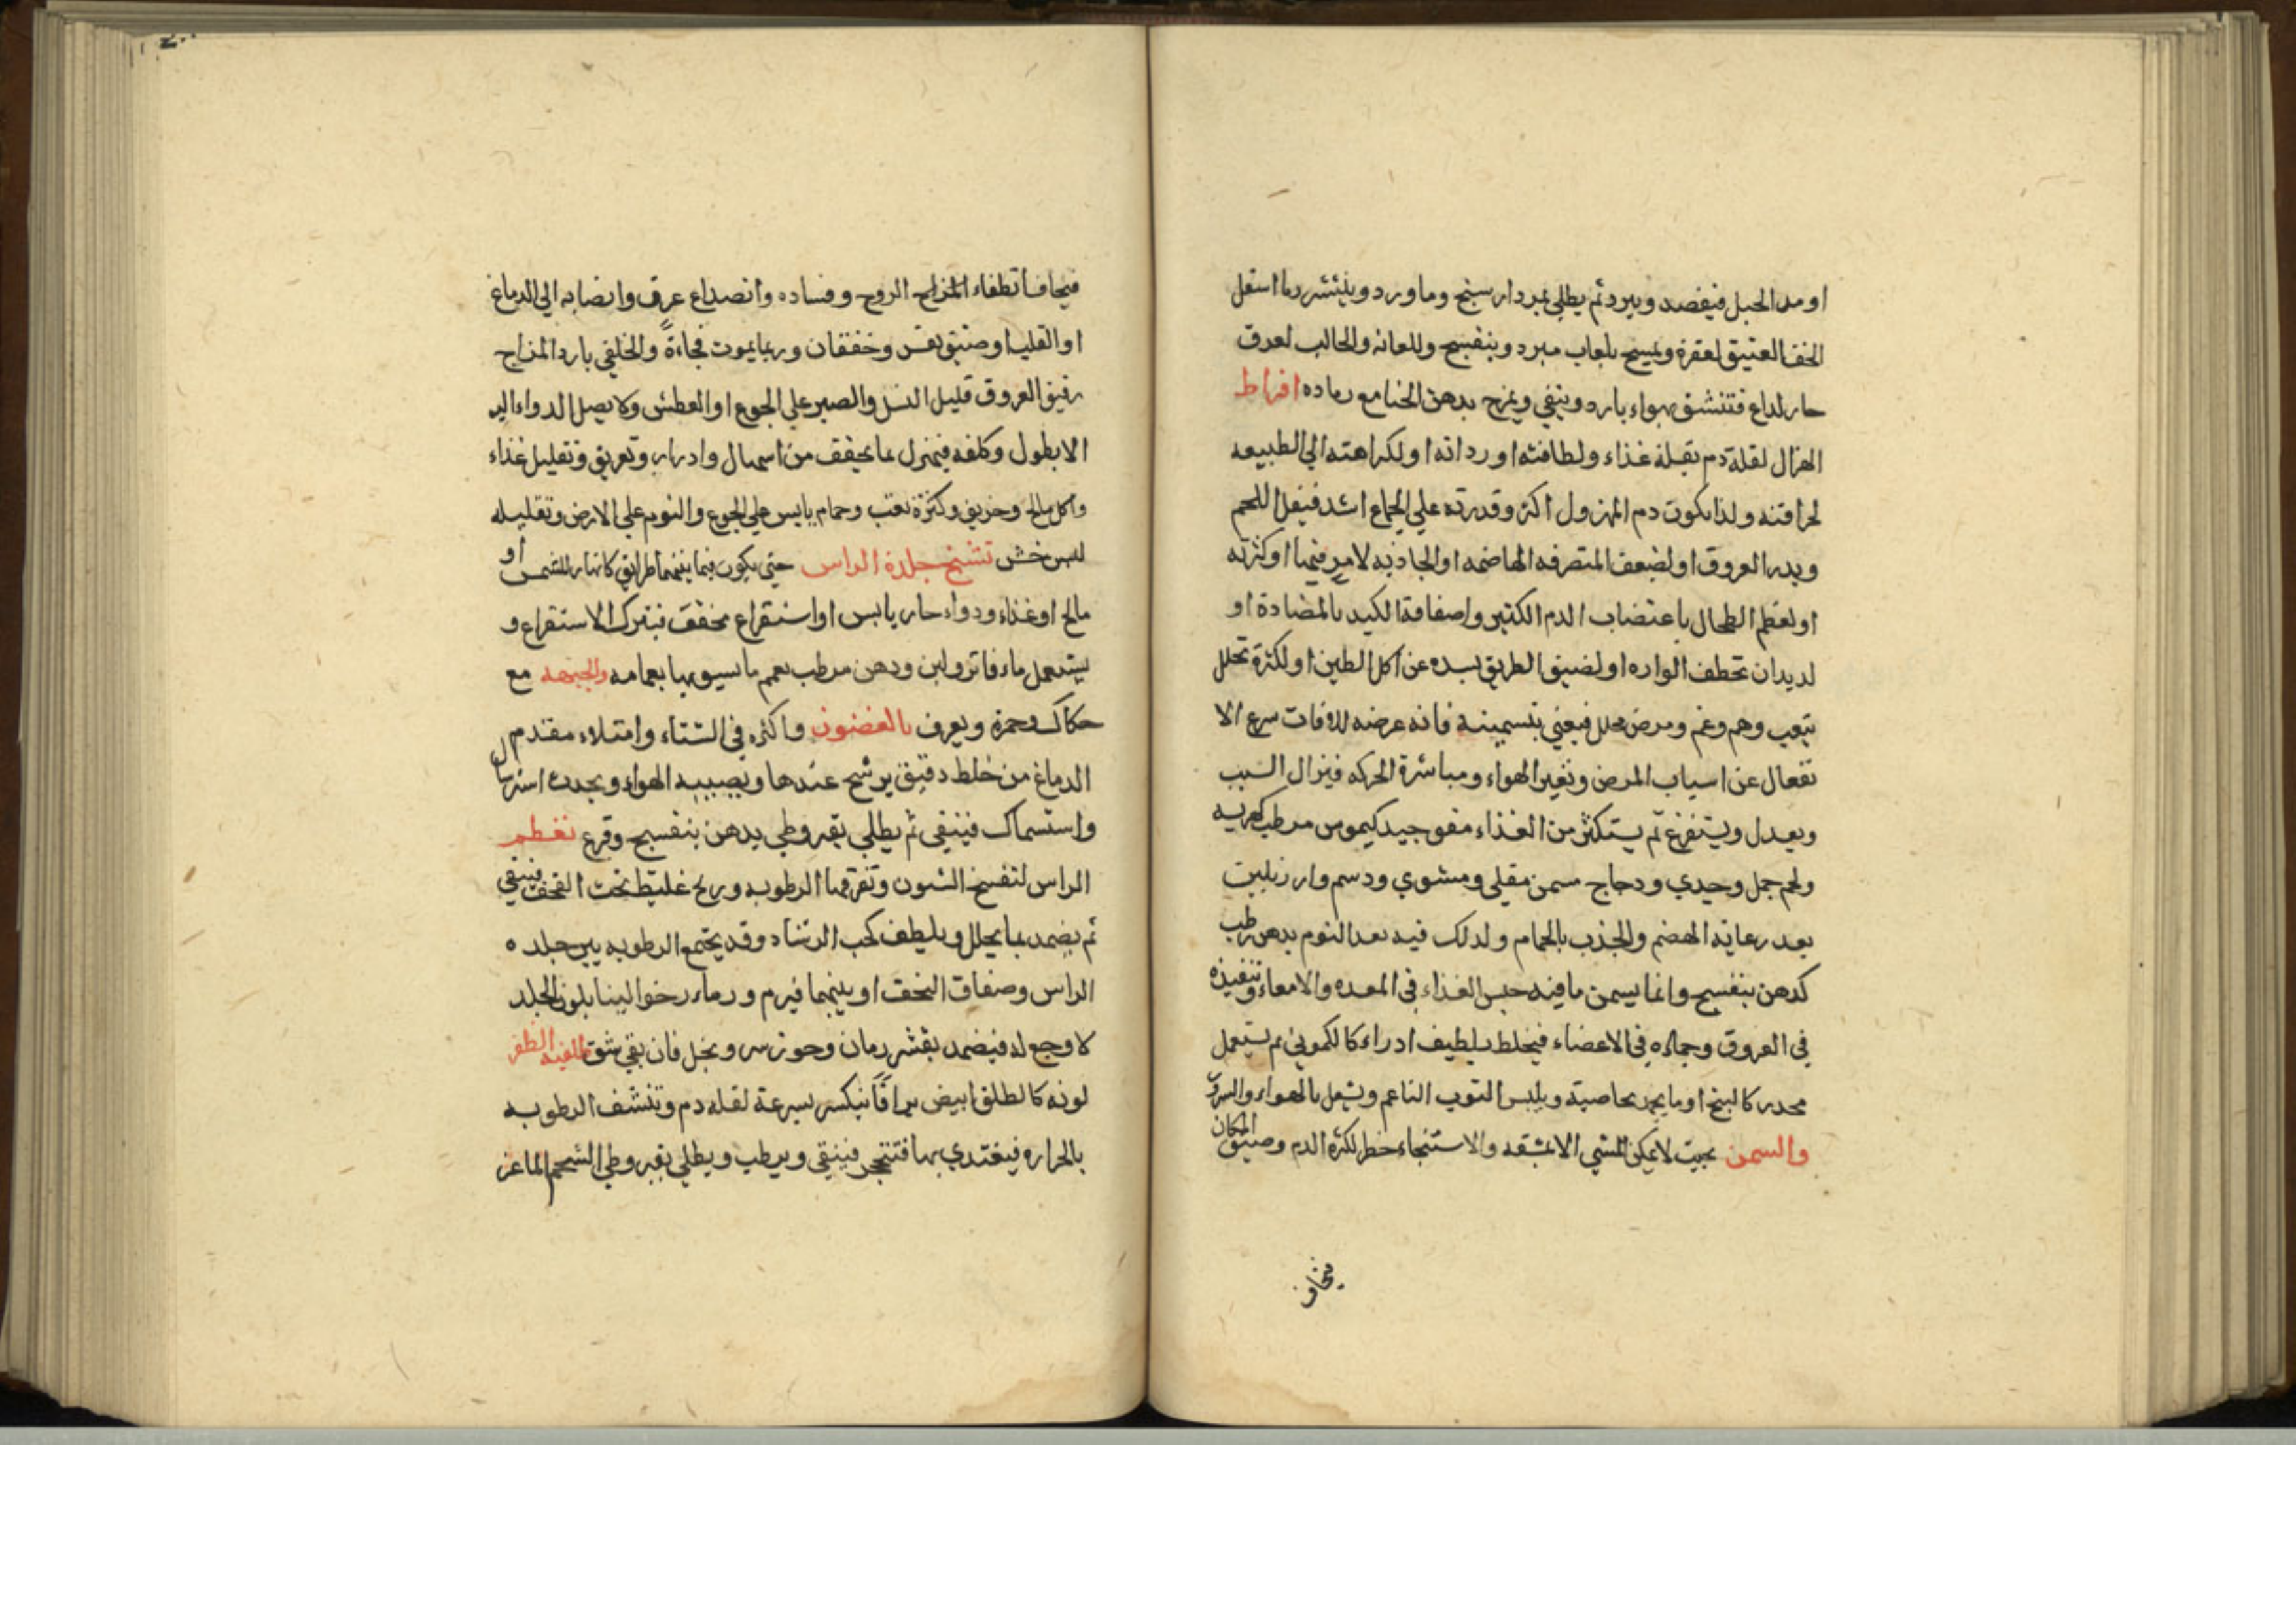 او مد الحبل فيفصد ويبرد ثم يطلي بمردارسنج وماورد وينثر رما اسفل
الخف العتيق لعقره ويمسح بلعاب مبرد وبنفسج وللعانه والحالب لعرق
حار لداع فتنشق بهواء بارد وينقي ويمزج بدهن الحنا مع رماده افراط
الهزال لقلة دم بقلة غذاء ولطافته او رداته او لكراهته الي الطبيعه
لحرافته ولذا يكون دم المهزول اكثر وقدرته علي الجماع اشد فيقل اللحم
ويدر العروق او لضعف المتصرفه الهاضمه او الجاذبه لامر فيها او كثرته
او لعظم الطحال باغتضاب الدم الكثير واصفافة الكبد بالمضادة او
لديدان تخطف الوارد او لضيق الطريق بسده عن اكل الطين او لكثرة تحلل
بتعب وهم وغم ومرض محلل فيعني بتسمينه فانه عرضه للافات سريع الا
نفعال عن اسباب المرض وتغير الهواء ومباشرة الحركه فيزال السبب
ويعدل ويستفرغ ثم يستكثر من الغذاء مقو جيد كيموس مرطب كهريسه
ولحم حمل وجدي ودجاج مسمن مقلي ومشوي ودسم وارز بلبن
بعد رعاية الهضم والجذب بالحمام ولدلك فيه بعد النوم بدهن رطب
كدهن بنفسج وانما يسمن مافيه حبس الغذاء في المعده والامعاء وتنفيذه
في العروق وجماده في الاعضاء فيخلط بلطيف ادراء كالكموني ثم يستعمل
مخدر كالبنج او ما يجمد بخاصية ويلبس الثوب الناعم ويشعل بالهواء والبرد
والسمن بحيث لا يمكن المشي الا بمشقه والاستنجاء خطر لكثره الدم وضيق المكان
يخاف
فيخاف انطفاء المزاج الروح وفساده وانصداع عرق وانصبابه الي الدماغ
او القلب او ضيق نفس وخفقان وربما يموت فجاءة والخلقي بارد المزاج
رقيق العروق قليل النسل والصبر علي الجوع او العطش ولا يصل الدواء اليه
الا بطول وكلفه فيهزل بما يجفف من اسهال وادرار وتعريق وتقليل غذاء
واكل مالح وحريف وكثرة تعب وحمام يابس علي الجوع والنوم علي الارض وتقليله
لبس خشن تشنج جلدة الراس حتي يكون فيما بينهما طرايق كانها رللشمس او
مالح او غذاء ودواء حار يابس او استفراغ مجفف فيترك الاستفراغ و
يستعمل ماء فاتر ولبن ودهن مرطب يعمم ما يسويها بعمامه والجبهه مع
حكاك وحمرة ويعرف بالغضون واكثره في الشتاء وامتلاء مقدم
الدماغ من خلط دقيق يرشح عندها ويصيبه الهواء ويحدث استرسال
واستمساك فينقي ثم يطلي بقيروطي بدهن بنفسج وقرع تعظم
الراس لتفسخ الشون وتفرقها الرطوبه وريح غليظ تحت القحف فينقي
ثم يضمد بما يحلل ويلطف كحب الرشاد وقد يجتمع الرطوبه بين جلده
الراس وصفاق القحف او بينهما فيرم ورماء رخوا لينا بلون الجلد
لا وجع له فيضمد بقشر رمان وجوز سرو بخل فان بقي شق الظفر
لونه كالطلق ابيض براقا ينكسر بسرعة لقلة دم وتنشف الرطوبه
بالحراره فيغتدي بها فتتحجر فينقي ويرطب ويطلي بقيروطي الشحم الماعز